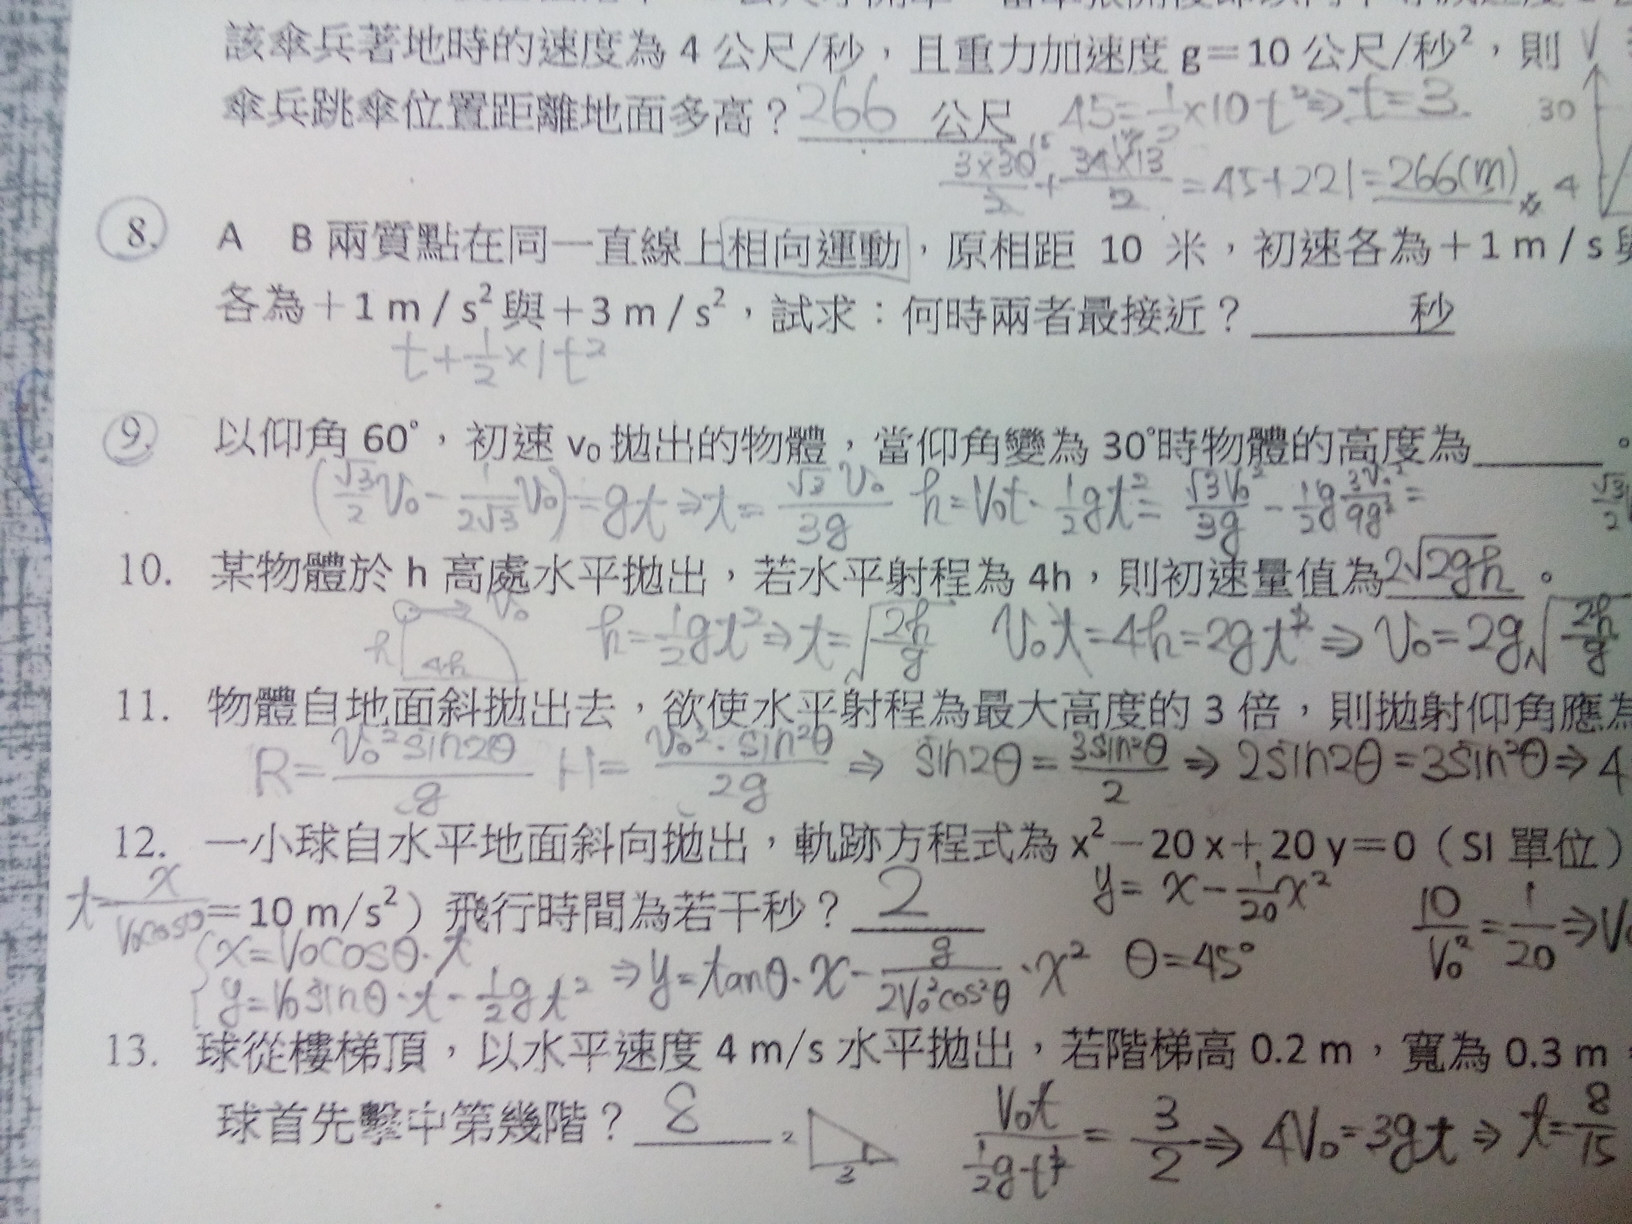 該傘兵著地時的速度為 4 公尺/秒，且重力加速度 g＝10 公尺/秒²，則 V
傘兵跳傘位置距離地面多高？266 公尺 45=½×10t²⇒t=3 30
3×30/2+34×13/2=45+221=266(m) 4
8. A B 兩質點在同一直線上相向運動，原相距 10 米，初速各為＋1 m / s
各為＋1 m / s²與＋3 m / s²，試求：何時兩者最接近？______秒
t+½×1t²
9. 以仰角 60°，初速 v₀ 拋出的物體，當仰角變為 30°時物體的高度為______。
(√3/2 V₀ - 1/2√3 V₀)=gt⇒t=√3V₀/3g h=V₀t-½gt²=√3V₀²/3g-½g 3V₀²/9g²= √3/2
10. 某物體於 h 高處水平拋出，若水平射程為 4h，則初速量值為2√2gh。
V₀ h 4h h=½gt²⇒t=√2h/g V₀t=4h=2gt²⇒V₀=2g√2h/g
11. 物體自地面斜拋出去，欲使水平射程為最大高度的 3 倍，則拋射仰角應為
R=V₀²sin2θ/g H=V₀²·sin²θ/2g ⇒ sin2θ=3sin²θ/2⇒2sin2θ=3sin²θ⇒4
12. 一小球自水平地面斜向拋出，軌跡方程式為 x²－20 x＋20 y＝0（SI 單位）
t=x/V₀cosθ ＝10 m/s²）飛行時間為若干秒？2 y=x-1/20 x² 10/V₀²=1/20⇒V₀
{x=V₀cosθ·t
y=V₀sinθ·t-½gt² ⇒y=tanθ·x-g/2V₀²cos²θ·x² θ=45°
13. 球從樓梯頂，以水平速度 4 m/s 水平拋出，若階梯高 0.2 m，寬為 0.3 m，
球首先擊中第幾階？8 2 3 V₀t/½gt²=3/2⇒4V₀=3gt⇒t=8/15